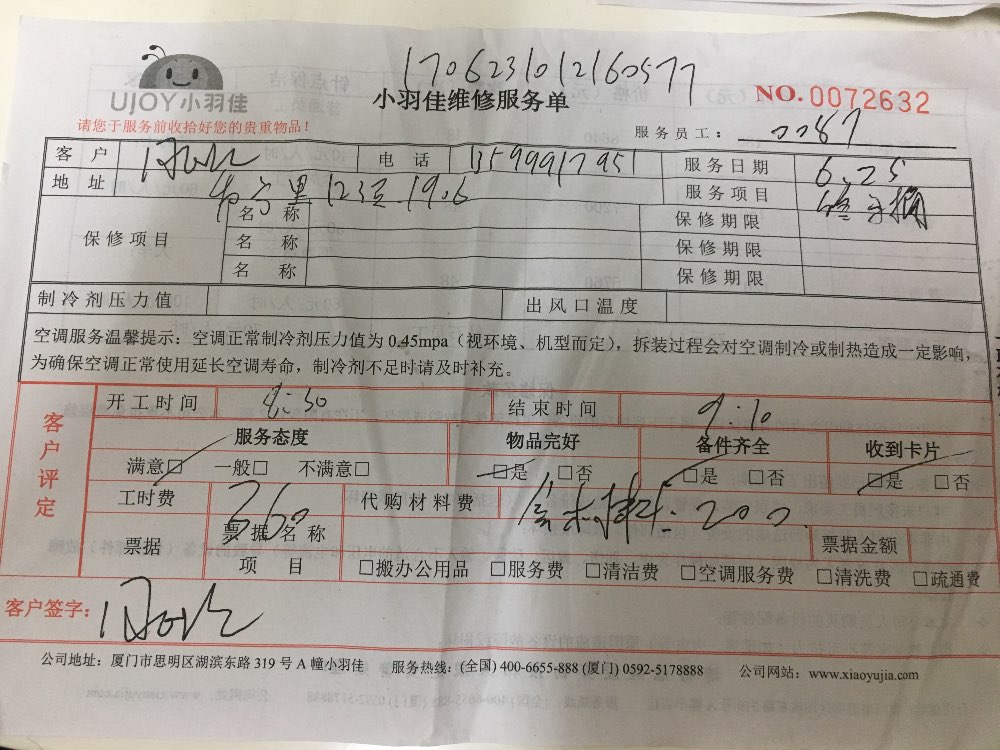 1706231012160577
UJOY小羽佳
小羽佳维修服务单
NO. 0072632
请您于服务前收拾好您的贵重物品！
服务员工：
客 户 电 话 13599917951 服务日期 6.25
地 址 里123号1906 服务项目
保修项目 名 称 保修期限
名 称 保修期限
名 称 保修期限
制冷剂压力值 出风口温度
空调服务温馨提示：空调正常制冷剂压力值为 0.45mpa（视环境、机型而定），拆装过程会对空调制冷或制热造成一定影响，
为确保空调正常使用延长空调寿命，制冷剂不足时请及时补充。
客户评定
开工时间 8:30 结束时间 9:10
服务态度 物品完好 备件齐全 收到卡片
满意□ 一般□ 不满意□ □是 □否 □是 □否 □是 □否
工时费 360 代购材料费 200
票据 票据名称 票据金额
项 目 □搬办公用品 □服务费 □清洁费 □空调服务费 □清洗费 □疏通费
客户签字：
公司地址：厦门市思明区湖滨东路 319 号 A 幢小羽佳 服务热线：(全国) 400-6655-888 (厦门) 0592-5178888 公司网站：www.xiaoyujia.com